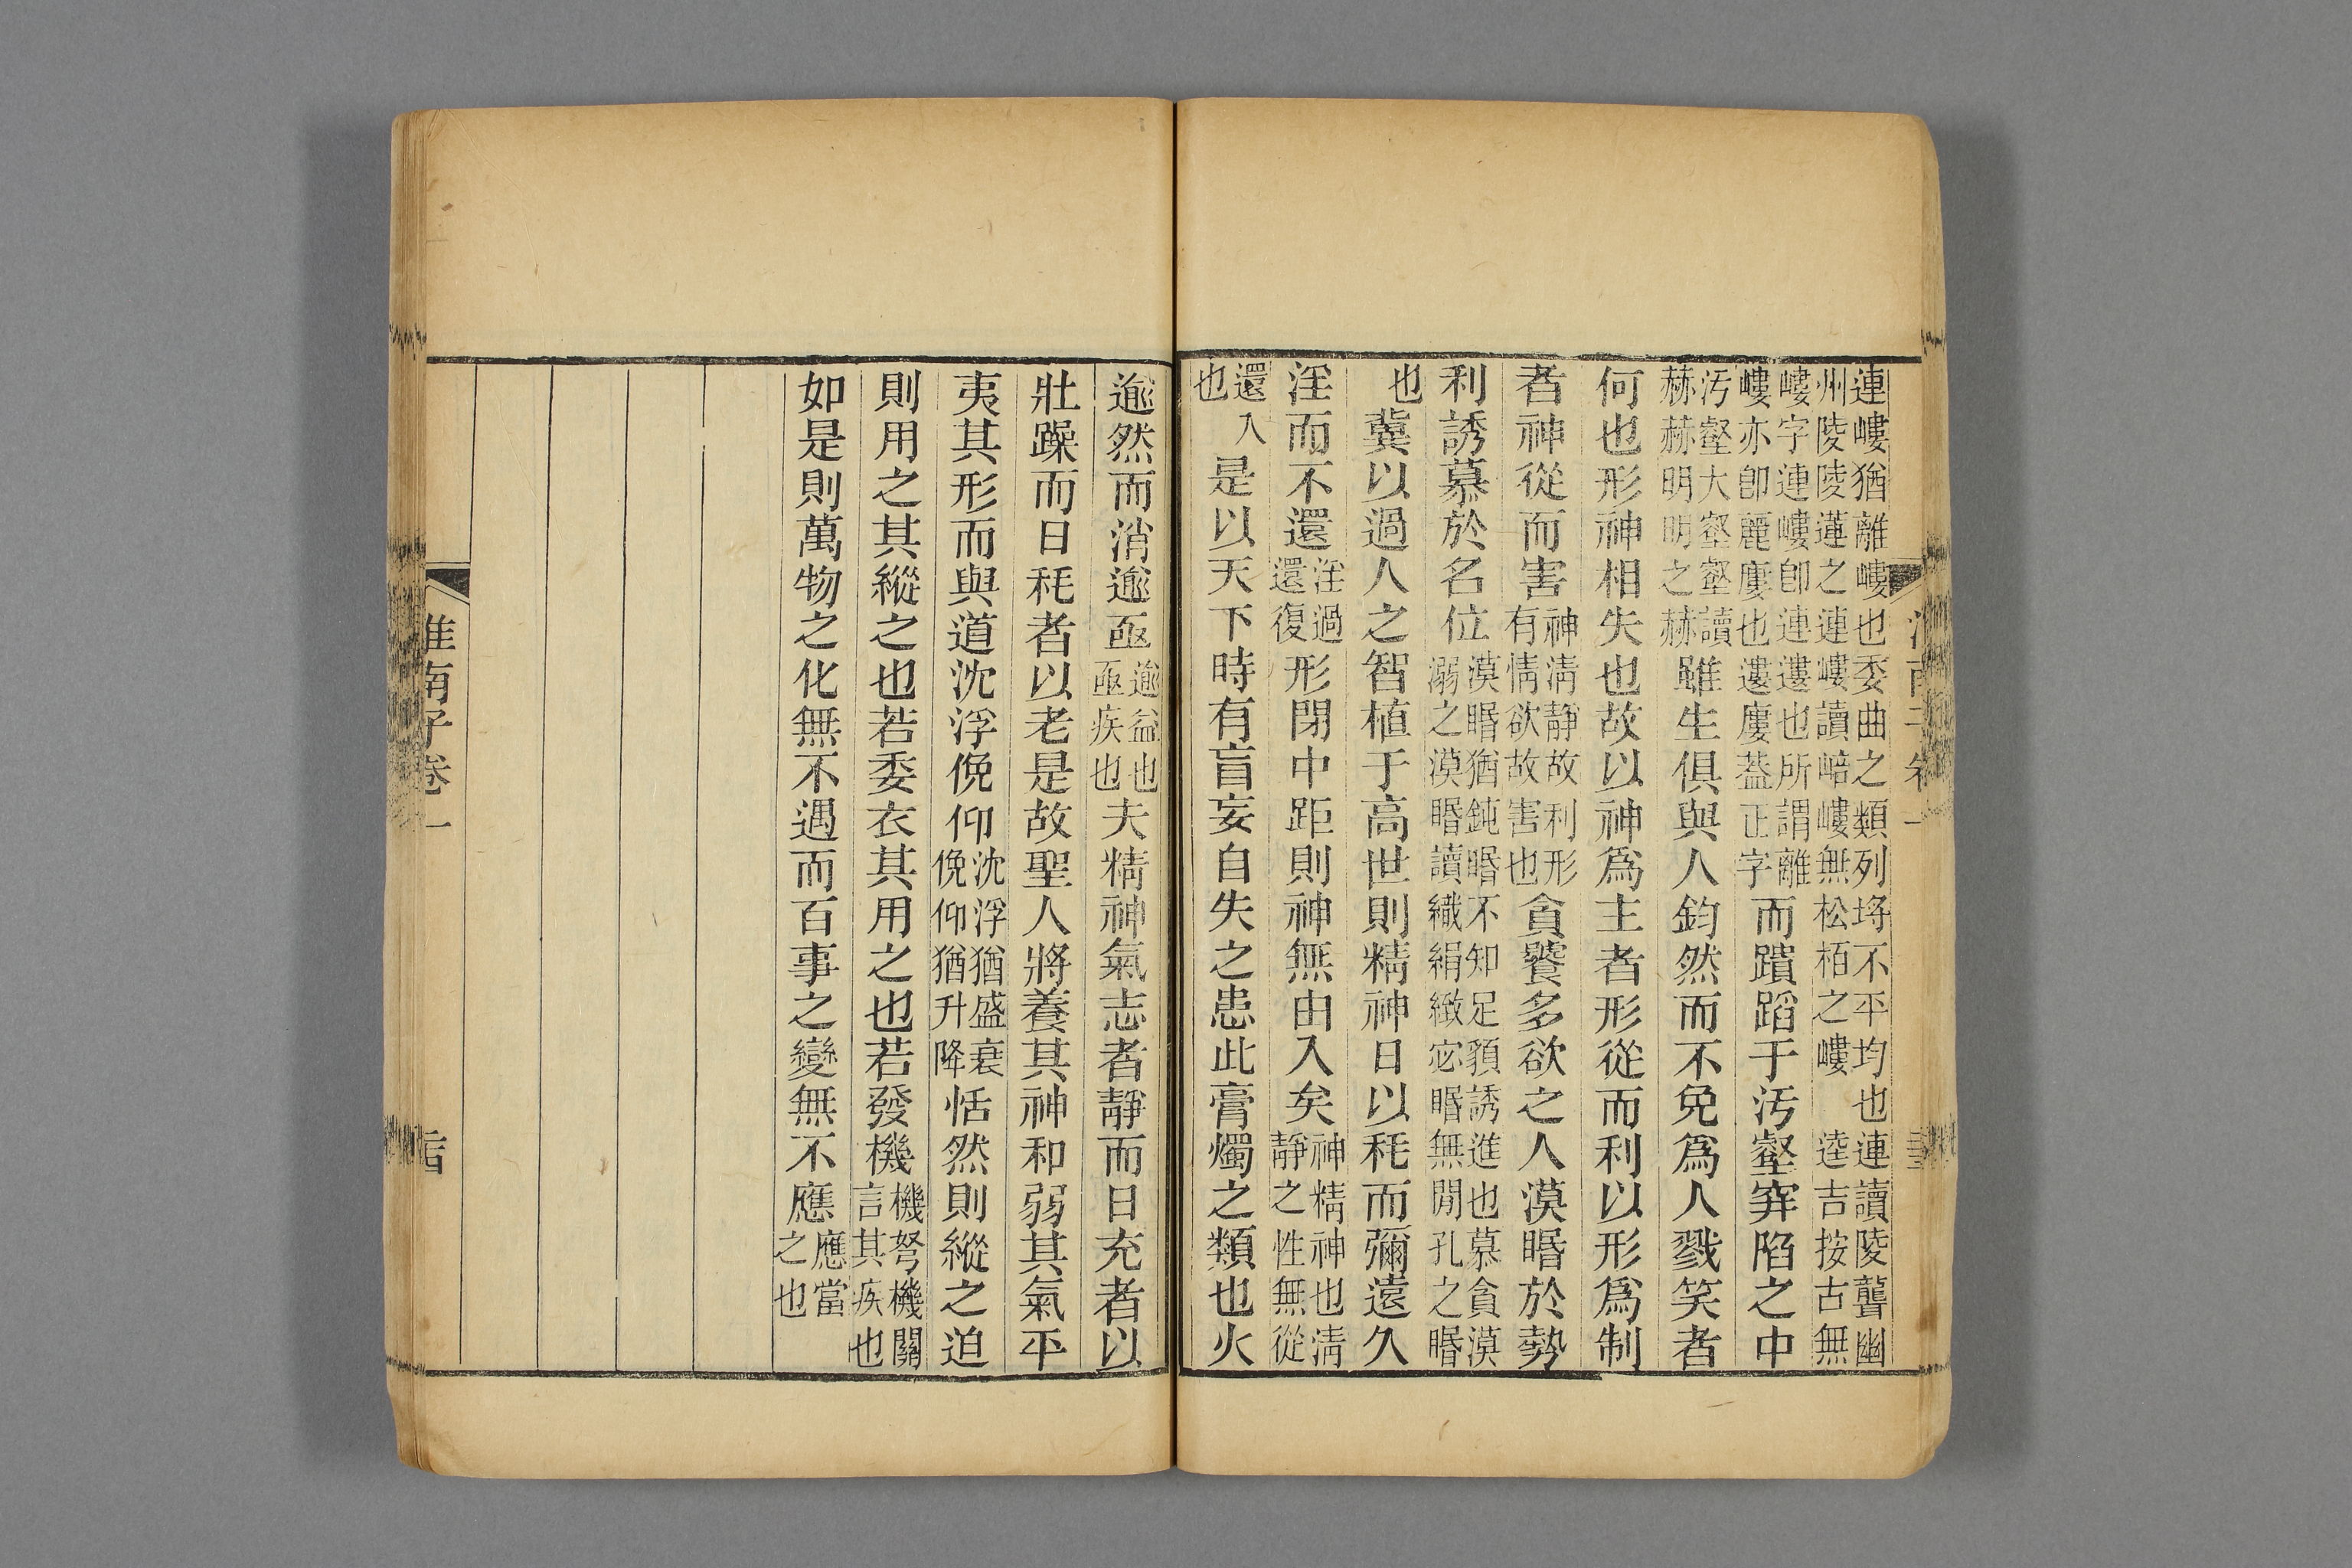 連嶁猶離嶁也委曲之類列埓不平均也連讀陵聾幽
州陵陵蓮之連嶁讀㟝嶁無松栢之嶁　逵吉按古無
嶁字連嶁卽連遱也所謂離
嶁亦卽麗廔也遱廔葢正字
而蹟蹈于汚壑穽陷之中
汚壑大壑壑讀
赫赫明明之赫
雖生俱與人鈞然而不免爲人戮笑者
何也形神相失也故以神爲主者形從而利以形爲制
者神從而害
神淸靜故利形
有情欲故害也
貪饕多欲之人漠睧於勢
利誘慕於名位
漠睧猶鈍睧不知足䫉誘進也慕貪漠
溺之漠睧讀織絹緻宓睧無閒孔之睧
也
冀以過人之智植于高世則精神日以秏而彌遠久
淫而不還
淫過
還復
形閉中距則神無由入矣
神精神也淸
靜之性無從
還入
也
是以天下時有盲妄自失之患此膏燭之類也火
逾然而消逾亟
逾益也
亟疾也
夫精神氣志者靜而日充者以
壯躁而日秏者以老是故聖人將養其神和弱其氣平
夷其形而與道沈浮俛仰
沈浮猶盛衰
俛仰猶升降
恬然則縱之迫
則用之其縱之也若委衣其用之也若發機
機弩機關
言其疾也
如是則萬物之化無不遇而百事之變無不應
應當
之也
淮南子卷一